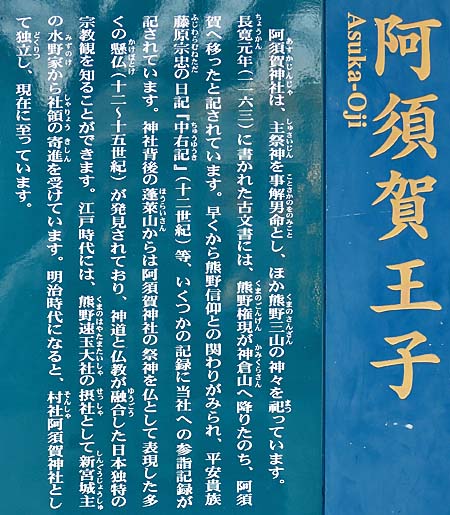 阿須賀王子
Asuka-Oji
阿須賀神社は、主祭神を事解男命とし、ほか熊野三山の神々を祀っています。
長寛元年（一一六三）に書かれた古文書には、熊野権現が神倉山へ降りたのち、阿須
賀へ移ったと記されています。早くから熊野信仰との関わりがみられ、平安貴族
藤原宗忠の日記『中右記』（十二世紀）等、いくつかの記録に当社への参詣記録が
記されています。神社背後の蓬萊山からは阿須賀神社の祭神を仏として表現した多
くの懸仏（十二～十五世紀）が発見されており、神道と仏教が融合した日本独特の
宗教観を知ることができます。江戸時代には、熊野速玉大社の摂社として新宮城主
の水野家から社領の寄進を受けています。明治時代になると、村社阿須賀神社とし
て独立し、現在に至っています。